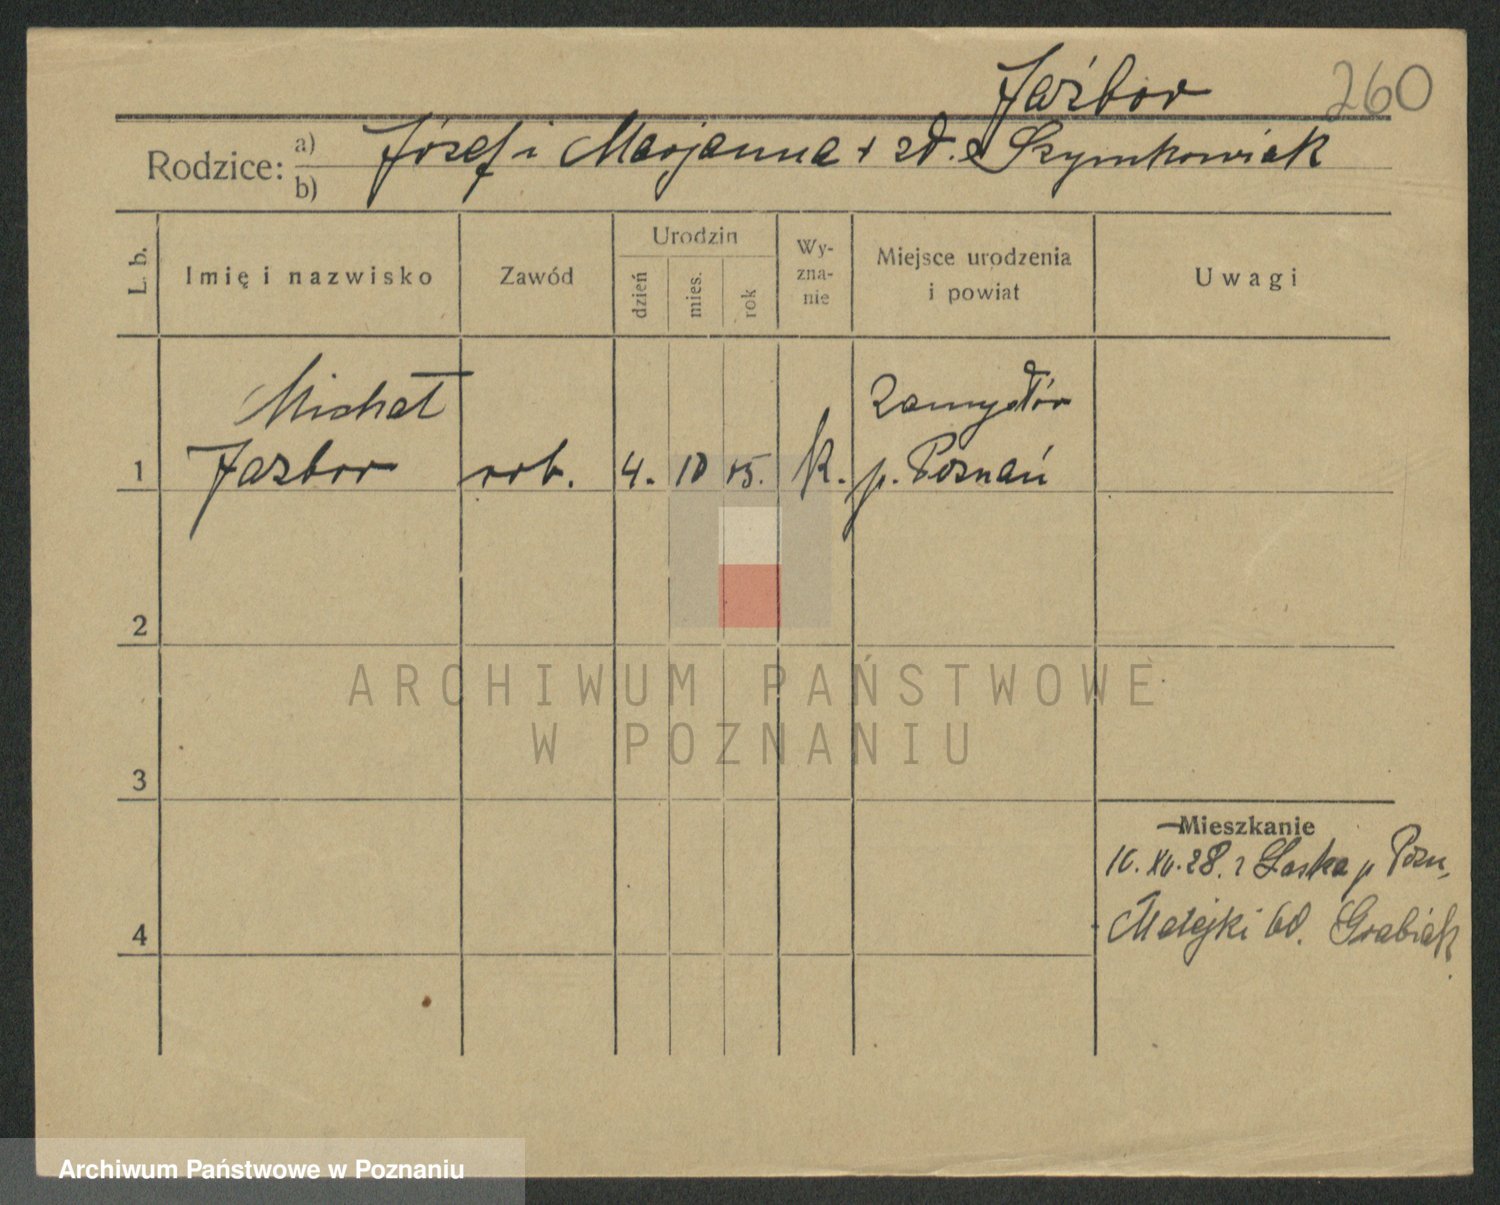 Jaźbor 260
Rodzice: a) Józef i Marjanna + zd. Szymkowiak
b)
L. b. Imię i nazwisko Zawód Urodzin dzień mies. rok Wy-zna-nie Miejsce urodzenia i powiat Uwagi
Michał Zamysłów
1 Jazbor rob. 4. 10 15. k. p. Poznań
2
3
Mieszkanie
10. XII. 28. z Laska p Pozn,
4 Matejki 60. Grabiak
ARCHIWUM PAŃSTWOWE
W POZNANIU
Archiwum Państwowe w Poznaniu